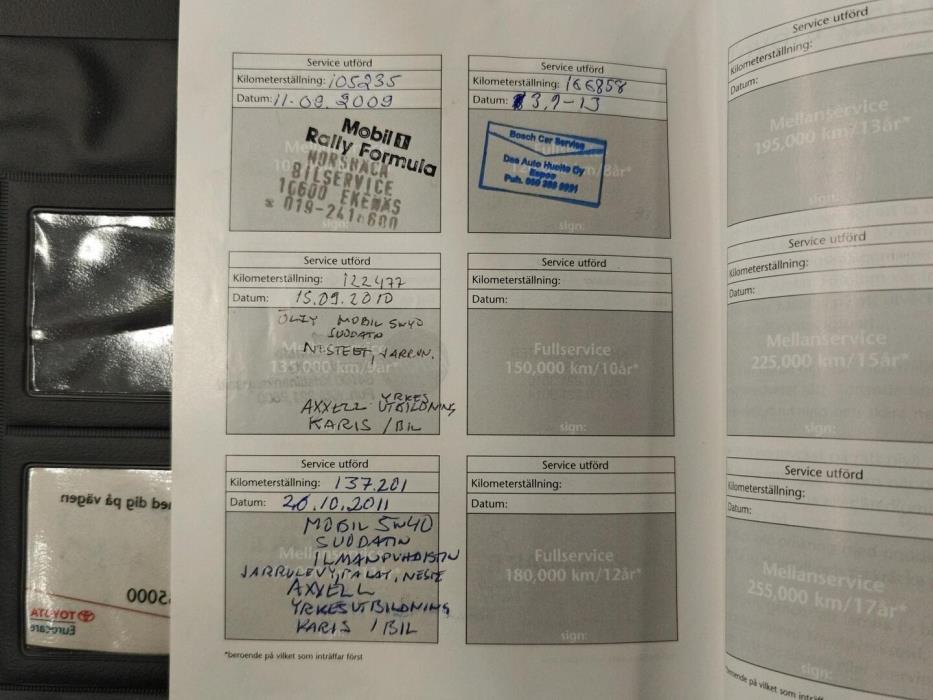 Service utförd
Kilometerställning: 105235
Datum: 11.09.2009
Mobil 1
Rally Formula
BILSERVICE
10600 EKENÄS
Service utförd
Kilometerställning: 122477
Datum: 15.09.2010
ÖLJY MOBIL 5W40
SUODATIN
135,000 km/9år*
AXXELL YRKES
UTBILDNING
KARIS / BIL
Service utförd
Kilometerställning: 137.201
Datum: 26.10.2011
MOBIL 5W40
SUODATIN
ILMANPUHDISTIN
JARRULEVY, PALAT, NESTE
AXXELL
YRKESUTBILDNING
KARIS / BIL
*beroende på vilket som inträffar först
Service utförd
Kilometerställning: 166858
Datum: 3.9-13
Bosch Car Service
Das Auto Huolto Oy
Espoo
Puh.
sign:
Service utförd
Kilometerställning:
Datum:
Fullservice
150,000 km/10år*
sign:
Service utförd
Kilometerställning:
Datum:
Fullservice
180,000 km/12år*
sign:
Service utförd
Kilometerställning:
Datum:
Mellanservice
195,000 km/13år*
sign:
Service utförd
Kilometerställning:
Datum:
Mellanservice
225,000 km/15år*
sign:
Service utförd
Kilometerställning:
Datum:
Mellanservice
255,000 km/17år*
sign:
beroende på vilket som inträffar
med dig på vägen
TOYOTA
Eurocare